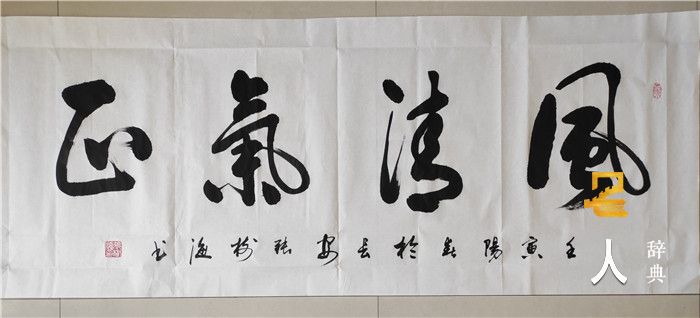 風清氣正
壬寅陽春於長安張樹海书
人
辞典